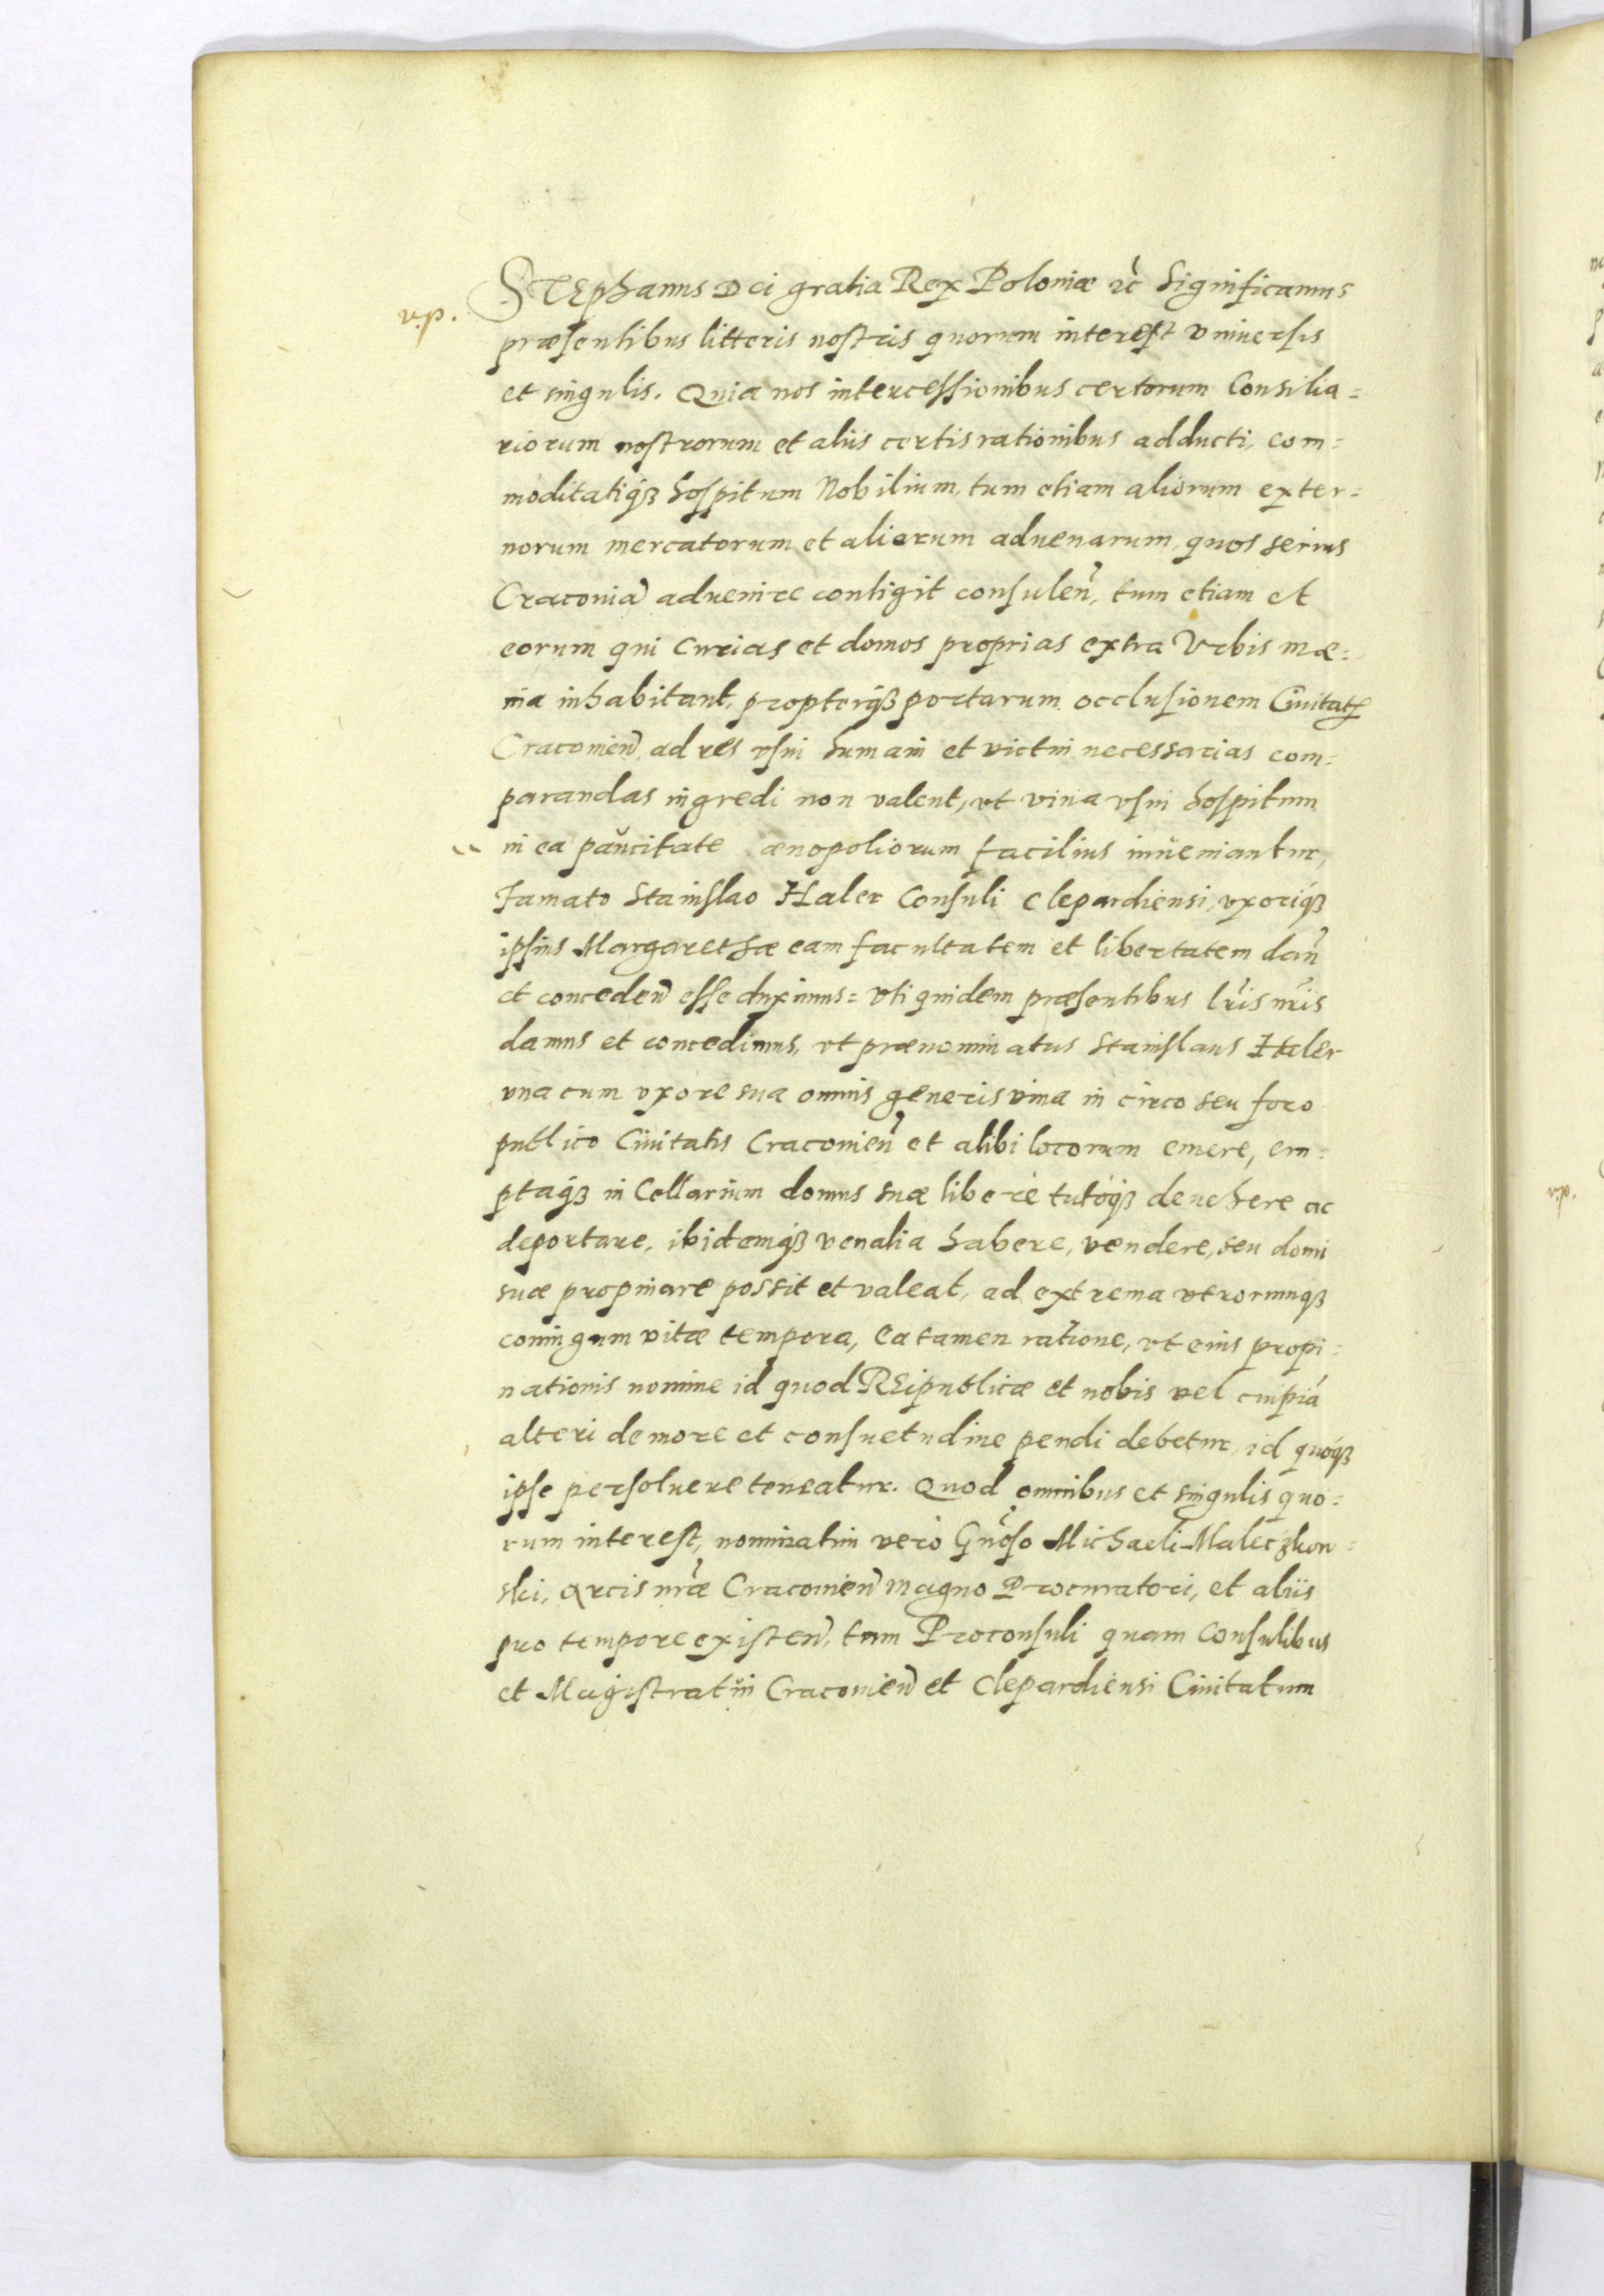 v.p.
STEphanus Dei gratia Rex Poloniæ &c̃ Significamus
præsentibus litteris nostris quorum interest vniuersis
et singulis. Quia nos intercessionibus certorum Consilia=
riorum nostrorum et aliis certis rationibus adducti, com=
moditatiq́ꝫ hospitum Nobilium, tum etiam aliorum exter=
norum mercatorum et aliorum aduenarum, quos serius
Cracouiã aduenire contigit consuleñ, tum etiam et
eorum qui Curias et domos proprias extra Vrbis mœ=
nia inhabitant, propterq́ꝫ portarum occlusionem Ciuitatꝭ
Cracouieñ, ad res vsui humani et victui necessarias com=
parandas ingredi non valent, vt vina vsui hospitum
in ea paŭcitate œnopoliorum facilius inueniantur,
famato Stanislao Haler Consuli Clepardiensi, vxoriq́ꝫ
ipsius Margarethæ eam facultatem et libertatem dañ
et concedeñ esse duximus= vti quidem præsentibus lr̃is nr̃is
damus et concedimus, vt prænominatus Stanislaus Haler
vna cum vxore sua omnis generis vina in circo seu foro
publico Ciuitatis Cracouieñ et alibi locorum emere, em=
ptaq́ꝫ in Cellarium domus suæ liberè tutoq́ꝫ deuehere ac
deportare, ibidemq́ꝫ venalia habere, vendere, seu domi
suæ propinare possit et valeat, ad extrema vtrorumqꝫ
coniugum vitæ tempora, Ea tamen ratione, vt eius propi=
nationis nomine id quod REipublicæ et nobis vel cuipiã
alteri de more et consuetudine pendi debetur, id quóqꝫ
ipse persoluere teneatur. Quod omnibus et singulis quo=
rum interest, nominatim verò Gñoso Michaeli Maleczkow=
ski, Arcis nr̃æ Cracouieñ magno Procuratori, et aliis
pro tempore existeñ, tam Proconsuli quam Consulibus
et Magistratŭi Cracouieñ et Clepardiensi Ciuitatum